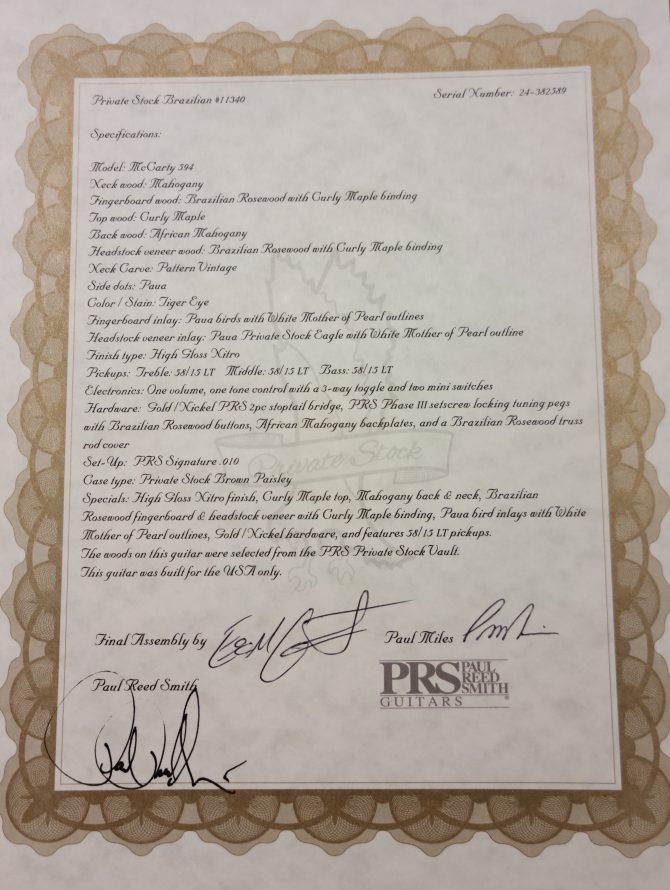 Private Stock Brazilian #11340
Serial Number: 24-382589
Specifications:
Model: McCarty 594
Neck wood: Mahogany
Fingerboard wood: Brazilian Rosewood with Curly Maple binding
Top wood: Curly Maple
Back wood: African Mahogany
Headstock veneer wood: Brazilian Rosewood with Curly Maple binding
Neck Carve: Pattern Vintage
Side dots: Paua
Color / Stain: Tiger Eye
Fingerboard inlay: Paua birds with White Mother of Pearl outlines
Headstock veneer inlay: Paua Private Stock Eagle with White Mother of Pearl outline
Finish type: High Gloss Nitro
Pickups: Treble: 58/15 LT Middle: 58/15 LT Bass: 58/15 LT
Electronics: One volume, one tone control with a 3-way toggle and two mini switches
Hardware: Gold / Nickel PRS 2pc stoptail bridge, PRS Phase III setscrew locking tuning pegs
with Brazilian Rosewood buttons, African Mahogany backplates, and a Brazilian Rosewood truss
rod cover
Set-Up: PRS Signature .010
Case type: Private Stock Brown Paisley
Specials: High Gloss Nitro finish, Curly Maple top, Mahogany back & neck, Brazilian
Rosewood fingerboard & headstock veneer with Curly Maple binding, Paua bird inlays with White
Mother of Pearl outlines, Gold / Nickel hardware, and features 58/15 LT pickups.
The woods on this guitar were selected from the PRS Private Stock Vault.
This guitar was built for the USA only.
Private Stock
Final Assembly by
Paul Miles
Paul Reed Smith
PRS PAUL
REED
SMITH
GUITARS